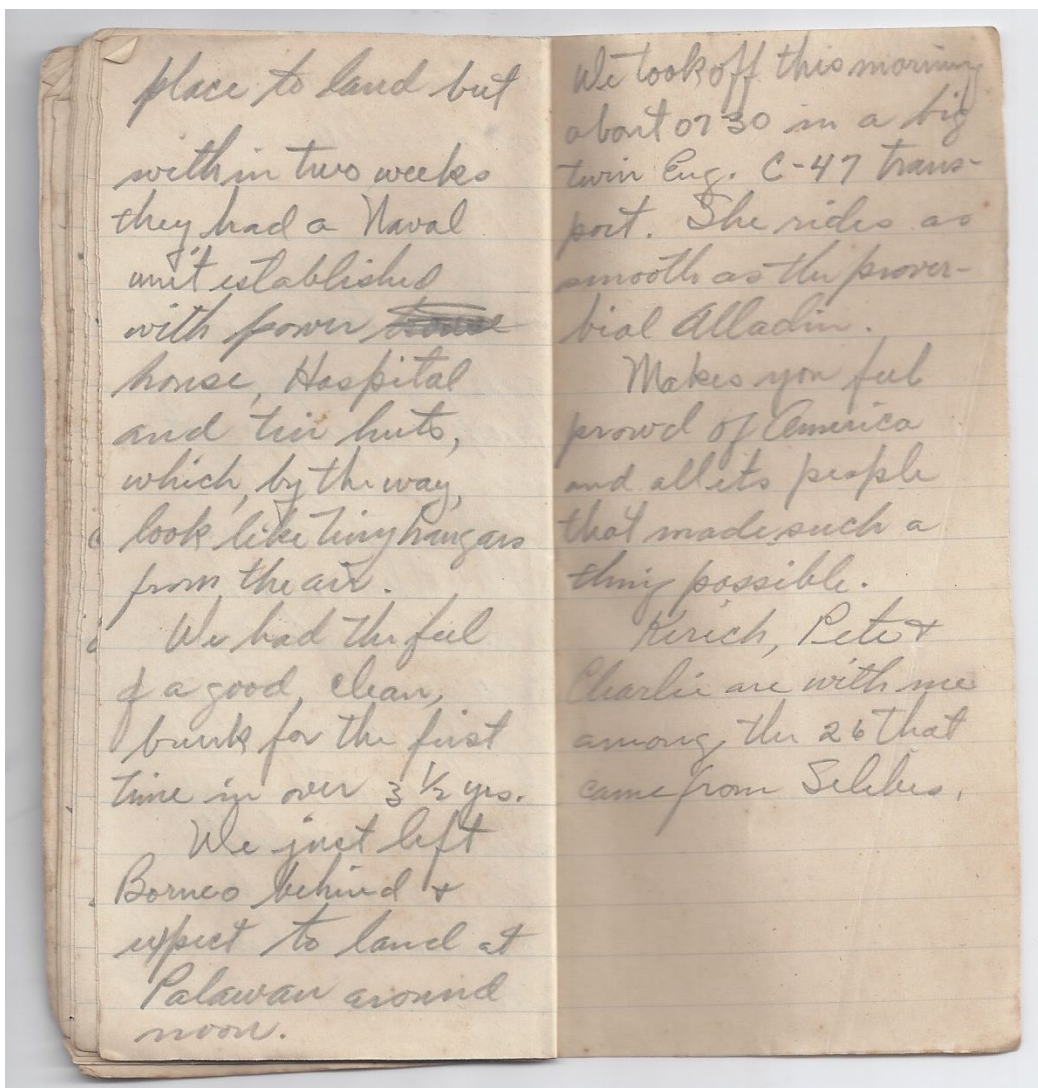 place to land but
within two weeks
they had a Naval
unit established
with power
house, Hospital
and tin huts,
which, by the way,
look like tiny hangars
from the air.
We had the feel
of a good, clean,
bunk for the first
time in over 3 1/2 yrs.
We just left
Borneo behind &
expect to land at
Palawan around
noon.
We took off this morning
about 0730 in a big
twin Eng. C-47 trans-
port. She rides as
smooth as the prover-
bial Alladin.
Makes you feel
prowd of America
and all its people
that made such a
thing possible.
Kerich, Pete &
Charlie are with me
among the 26 that
came from Selebes.